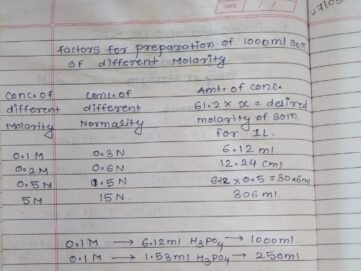 factors for preparation of 1000ml soln
of different Molarity
Conc. of different Molarity | Conc. of different Normality | Amt. of conc. 61.2 x x = desired molarity of soln for 1L.
0.1 M 0.3 N 6.12 ml
0.2 M 0.6 N 12.24 (ml)
0.5 M 1.5 N 61.2 x 0.5 = 30.6 ml
5M 15 N. 306 ml.
0.1 M → 6.12 ml H3PO4 → 1000 ml.
0.1 M → 1.53 ml H3PO4 → 250 ml.